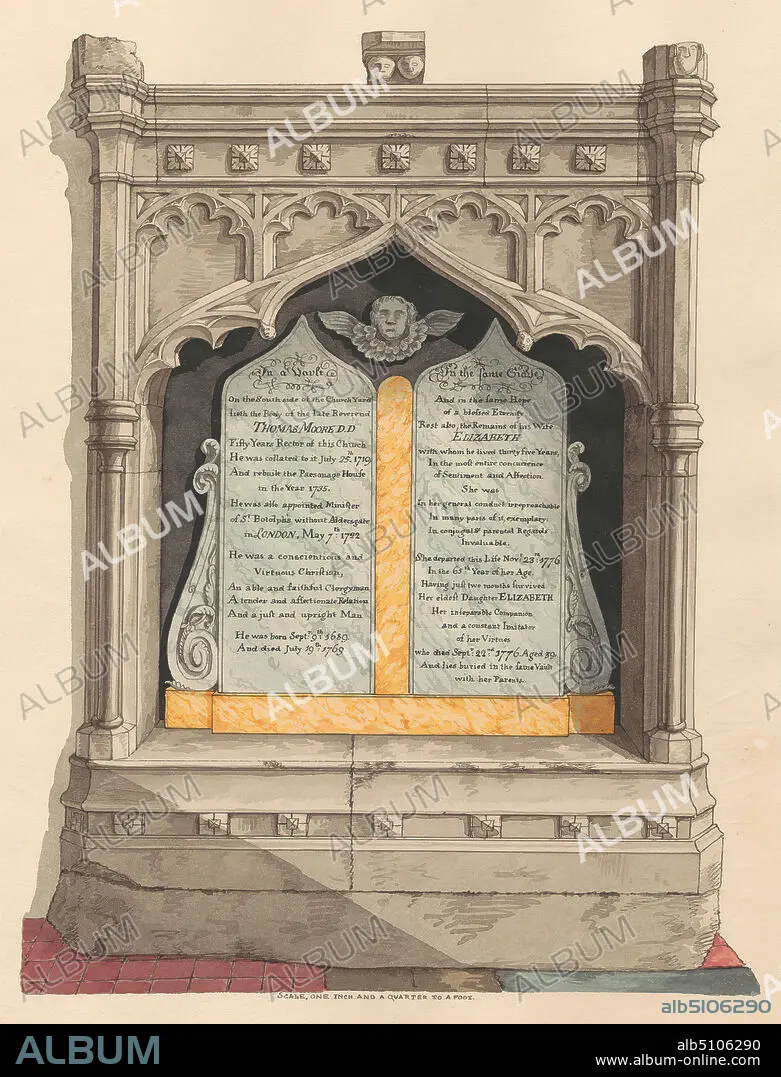 In a Vault
On the South side of the Church Yard
lieth the Body of the late Reverend
THOMAS MOORE D.D
Fifty Years Rector of this Church
He was collated to it July 25th 1719
And rebuilt the Parsonage House
in the Year 1735.
He was also appointed Minister
of St Botolphs without Aldersgate
in LONDON, May 7th 1722
He was a conscientious and
Virtuous Christian,
An able and faithful Clergyman
A tender and affectionate Relation
And a just and upright Man
He was born Septr 9th 1689
And died July 19th 1769
In the same Grave
And in the same Hope
of a blessed Eternity
Rest also, the Remains of his Wife
ELIZABETH
with whom he lived thirty five Years,
In the most entire concurrence
of Sentiment and Affection.
She was
In her general conduct irreproachable
In many parts of it, exemplary:
In conjugal & parental Regards
Invaluable.
She departed this Life Novr 23rd 1776
In the 65th Year of her Age,
Having just two months survived
Her eldest Daughter ELIZABETH
Her inseparable Companion
and a constant Imitator
of her Virtues
who died Septr 22nd 1776. Aged 39.
And lies buried in the same Vault
with her Parents.
SCALE, ONE INCH AND A QUARTER TO A FOOT.
alb5106290
ALBUM
alb5106290
www.album-online.com